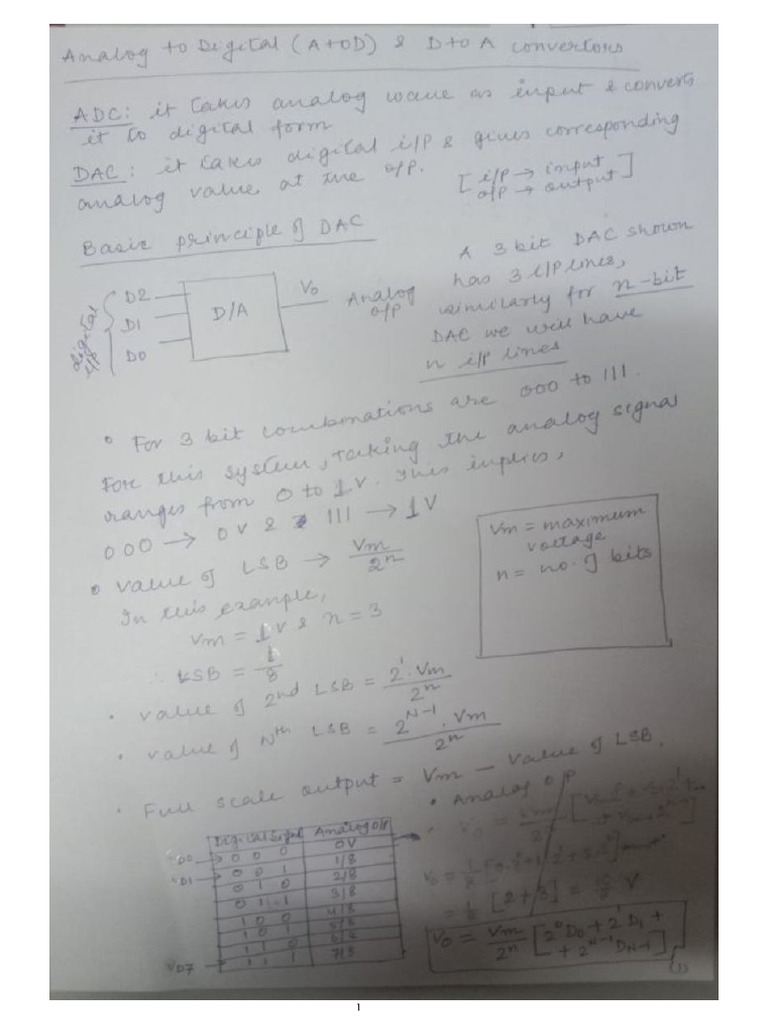 Analog to Digital (A to D) & D to A convertors
ADC: it takes analog wave as input & converts
it to digital form
DAC: it takes digital i/P & gives corresponding
analog value at the o/p.
[i/P → input
o/P → output]
Basic principle of DAC
digital i/P
D2
D1
D0
D/A
Vo
Analog
o/P
A 3 bit DAC shown
has 3 i/P lines,
similarly for n-bit
DAC we will have
n i/P lines
• For 3 bit combinations are 000 to 111.
For this system, taking the analog signal
ranges from 0 to 1V. This implies,
000 → 0V & 111 → 1V
Vm = maximum
voltage
n = no. of bits
• value of LSB → Vm/2^n
In this example,
Vm = 1V & n = 3
∴ LSB = 1/8
• value of 2nd LSB = 2^1. Vm/2^n
• value of Nth LSB = 2^N-1. Vm/2^n
• Full scale output = Vm - value of LSB.
Digital Signal Analog O/P
D0 → 0 0 0 0V
D1 → 0 0 1 1/8
0 1 0 2/8
0 1 1 3/8
1 0 0 4/8
1 0 1 5/8
1 1 0 6/8
D7 → 1 1 1 7/8
• Analog O/P
Vo = Vm/2^n [2^0 D0 + 2^1 D1 +
+ 2^N-1 DN-1]
(1)
1